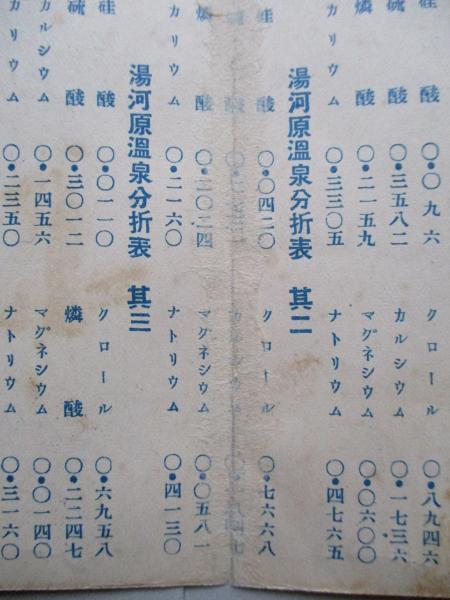 硅酸 〇・〇九六 クロール 〇・八九四六
硫酸 〇・三五八二 カルシウム 〇・一七三六
燐酸 〇・二一五九 マグネシウム 〇・〇六〇〇
カリウム 〇・三三〇五 ナトリウム 〇・四七六五
湯河原溫泉分折表 其二
硅酸 〇・〇四二〇 クロール 〇・七六六八
硫酸 カルシウム
燐酸 〇・二〇二四 マグネシウム 〇・〇五八一
カリウム 〇・二一六〇 ナトリウム 〇・四一三〇
湯河原溫泉分折表 其三
硅酸 〇・〇一一〇 クロール 〇・六九五八
硫酸 〇・三〇一二 燐酸 〇・二二四七
カルシウム 〇・一四五六 マグネシウム 〇・〇一四〇
カリウム 〇・二三五〇 ナトリウム 〇・三一六〇